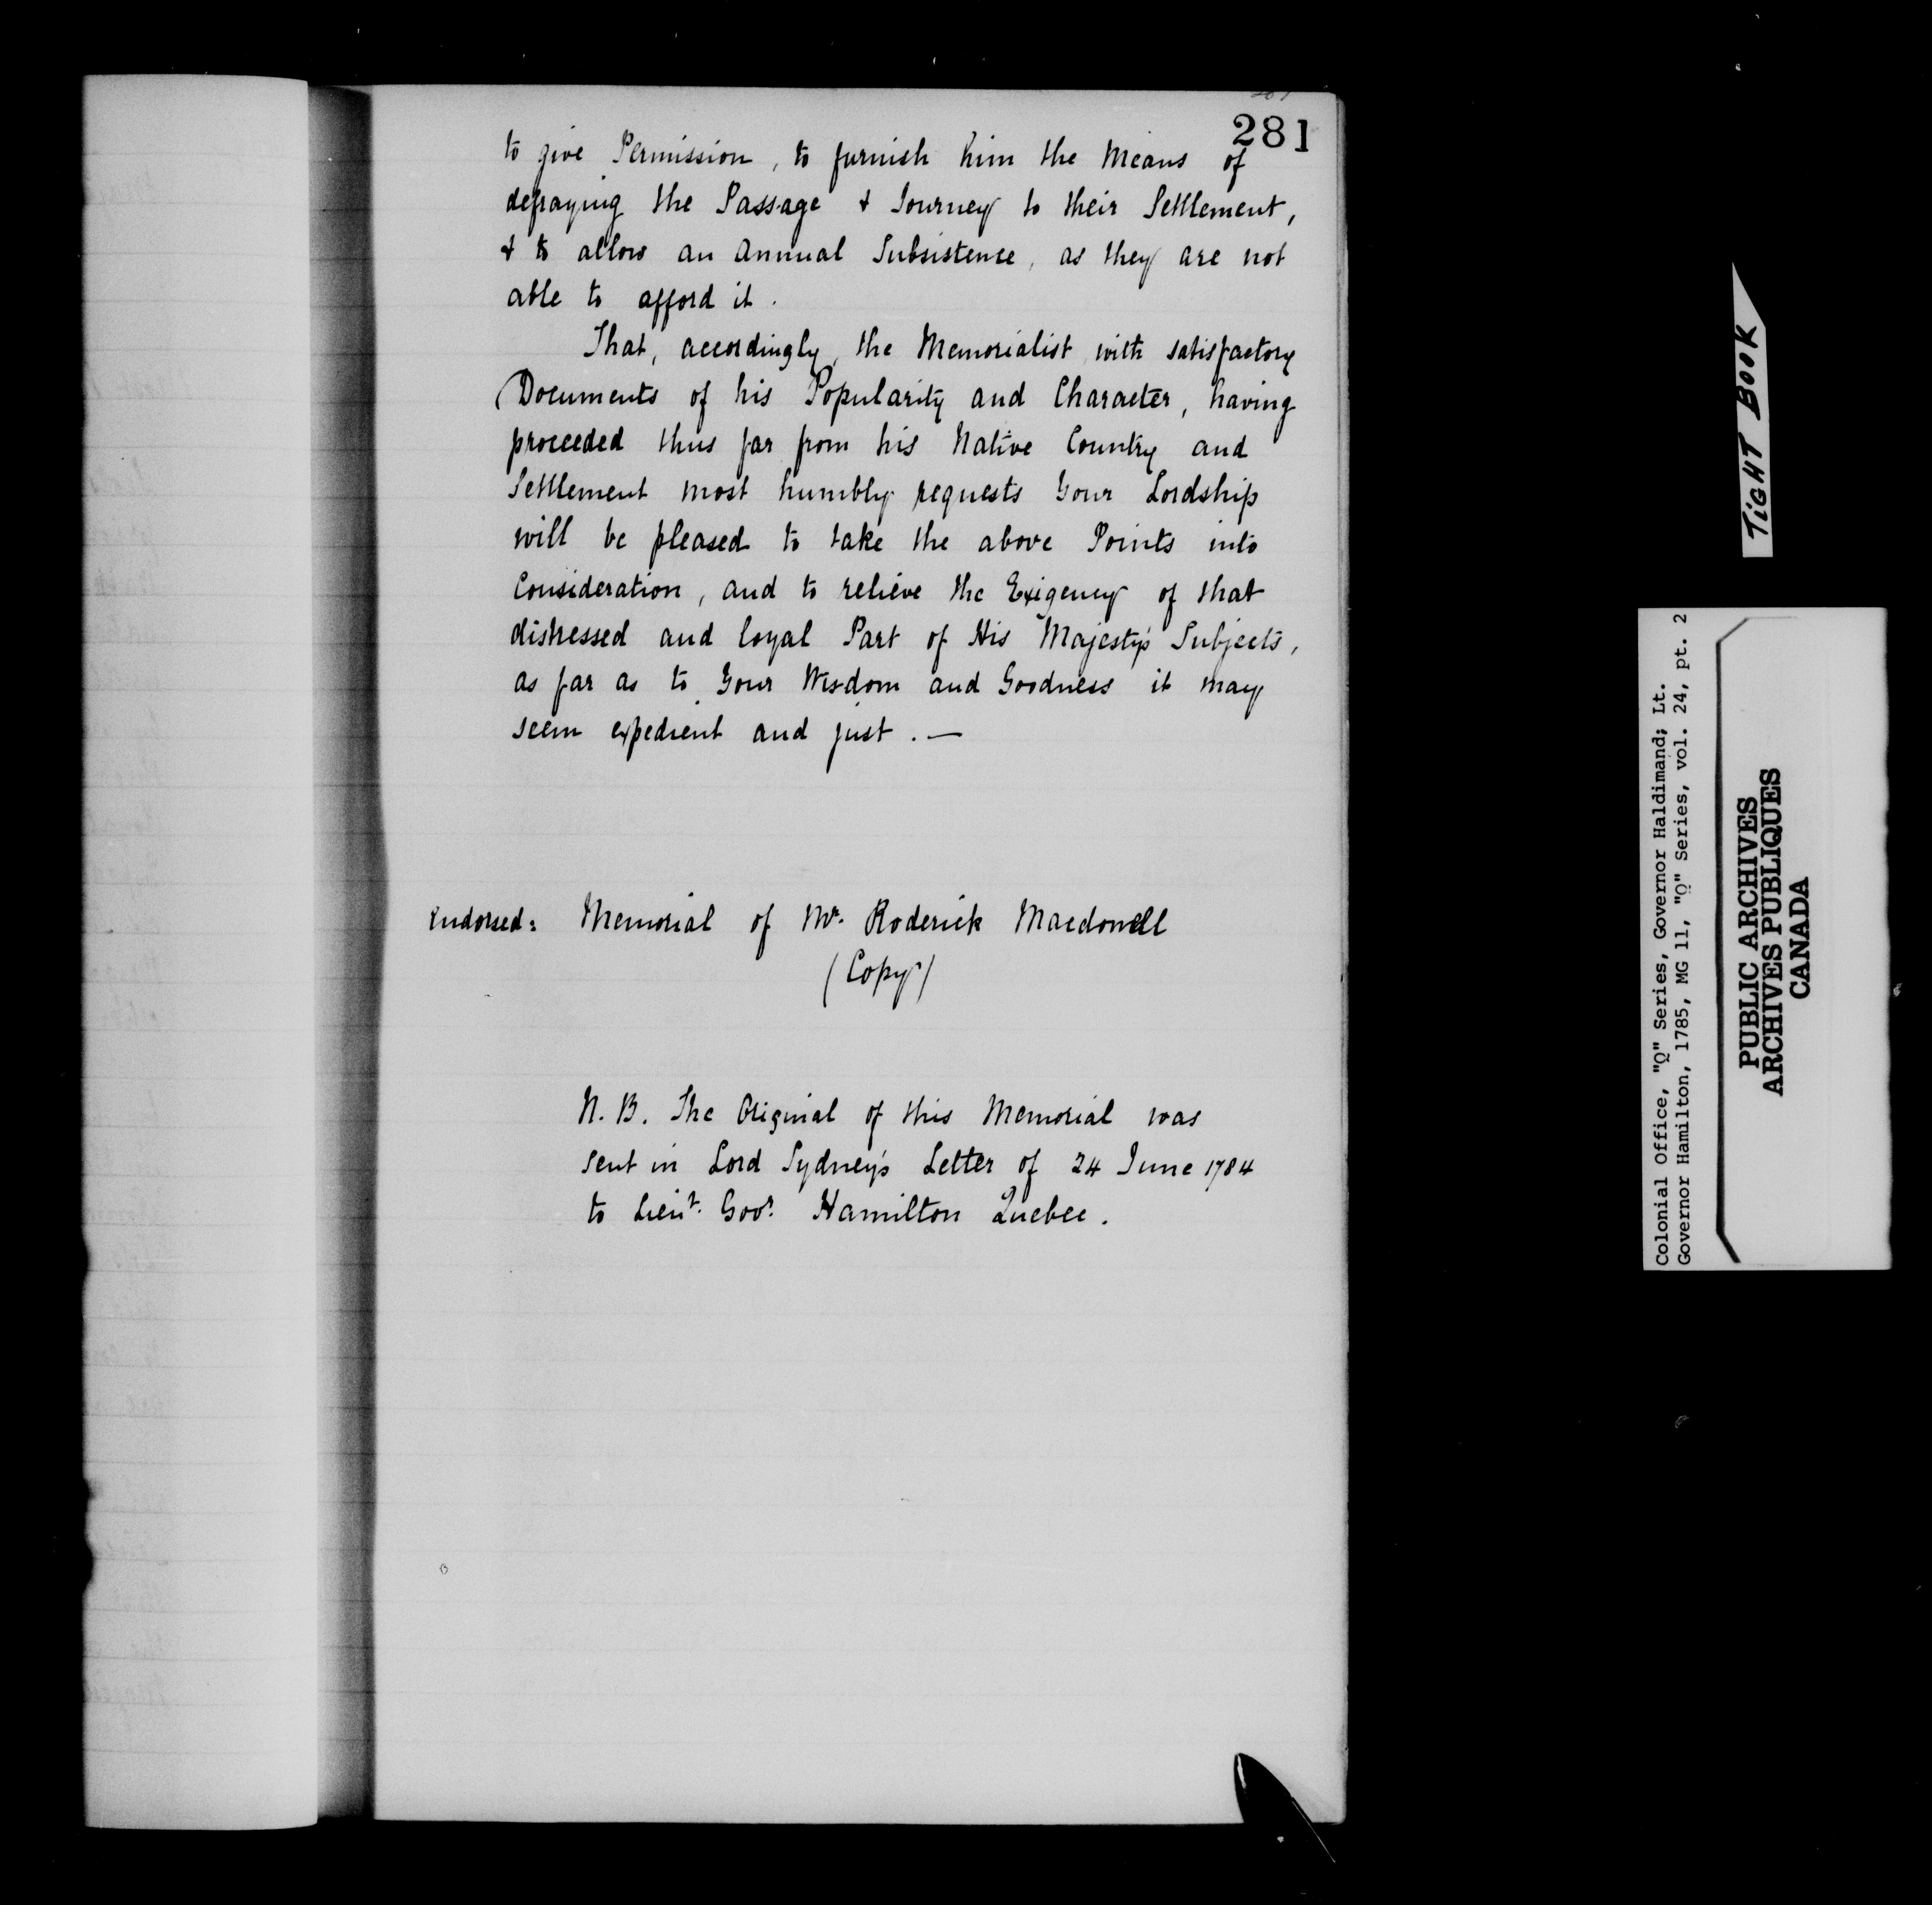 281
to give Permission, to furnish him the Means of
defraying the Passage & Journey to their Settlement,
& to allow an Annual Subsistence, as they are not
able to afford it.
That, accordingly, the Memorialist with satisfactory
Documents of his Popularity and Character, having
proceeded thus far from his Native Country and
Settlement most humbly requests Your Lordship
will be pleased to take the above Points into
Consideration, and to relieve the Exigency of that
distressed and loyal Part of His Majesty's Subjects,
as far as to Your Wisdom and Goodness it may
seem expedient and just. —
Endorsed: Memorial of Mr. Roderick Macdonell
(Copy)
N. B. The Original of this Memorial was
sent in Lord Sydney's Letter of 24 June 1784
to Lieut. Govr. Hamilton Quebec.
TIGHT BOOK
Colonial Office, "Q" Series, Governor Haldimand; Lt.
Governor Hamilton, 1785, MG 11, "Q" Series, vol. 24, pt. 2
PUBLIC ARCHIVES
ARCHIVES PUBLIQUES
CANADA